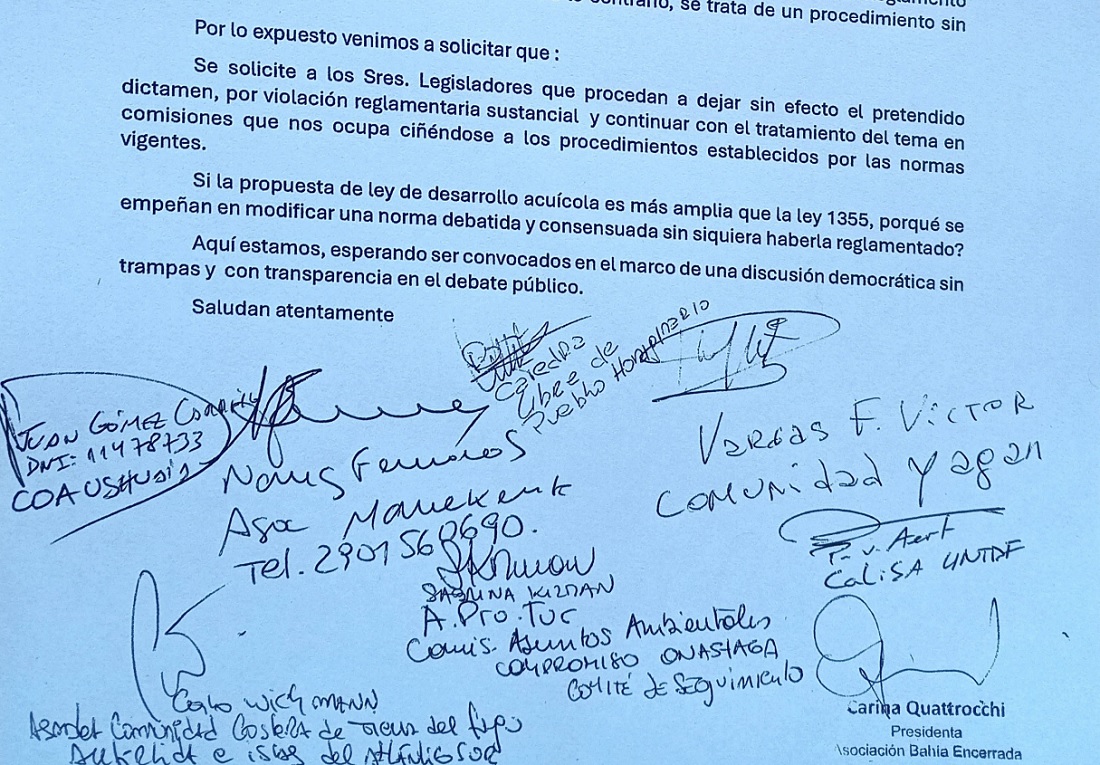 contrario, se trata de un procedimiento sin
Por lo expuesto venimos a solicitar que :
Se solicite a los Sres. Legisladores que procedan a dejar sin efecto el pretendido
dictamen, por violación reglamentaria sustancial y continuar con el tratamiento del tema en
comisiones que nos ocupa ciñéndose a los procedimientos establecidos por las normas
vigentes.
Si la propuesta de ley de desarrollo acuícola es más amplia que la ley 1355, porqué se
empeñan en modificar una norma debatida y consensuada sin siquiera haberla reglamentado?
Aquí estamos, esperando ser convocados en el marco de una discusión democrática sin
trampas y con transparencia en el debate público.
Saludan atentamente
Catedra
Libre de
Pueblo Originario
JUAN GÓMEZ
DNI: 11478733
COAUSHUAIA
Asoc Manekenk
Tel. 2901560690.
VARGAS F. VICTOR
COMUNIDAD Yagan
CALISA UNTDF
SABRINA
A.Pro.Tur
Comis. Asuntos Ambientales
COMPROMISO ONASHAGA
COMITÉ de SEGUIMIENTO
WICHMANN
Comunidad Costera de Tierra del fuego
e islas del Atlántico Sur
Carina Quattrocchi
Presidenta
Asociación Bahía Encerrada